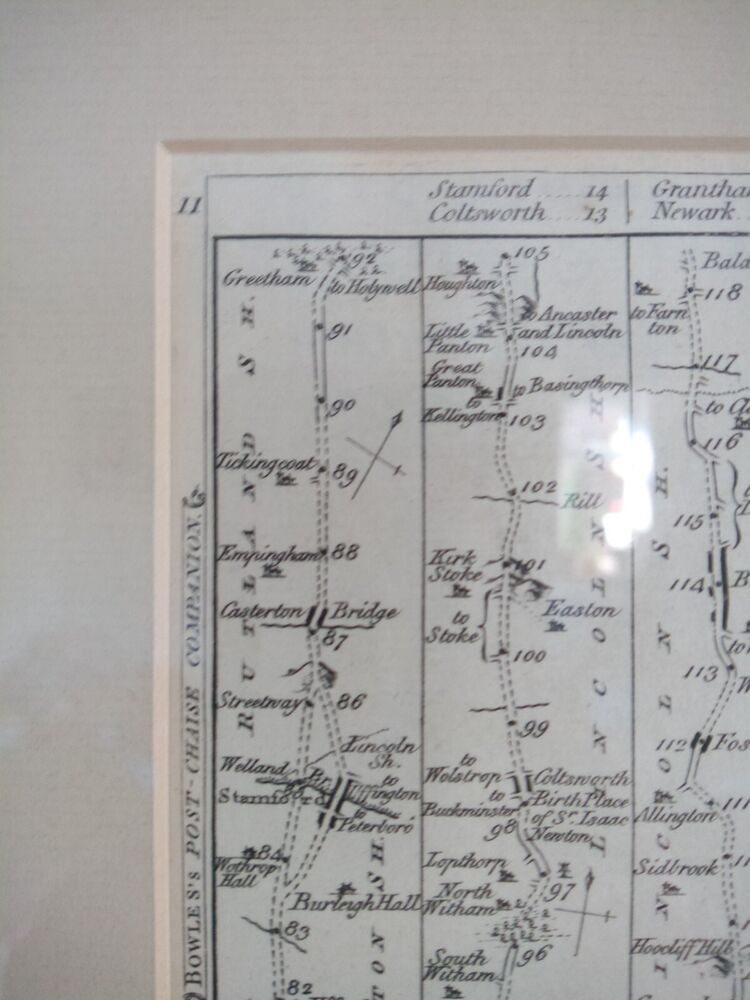 11
Stamford 14
Coltsworth 13
Grantha
Newark
BOWLES'S POST-CHAISE COMPANION
92
Greetham
to Holywell
91
90
Tickingcoat
89
Empingham
88
Casterton Bridge
87
Streetway
86
Lincoln
Sh.
Welland
Br.
to
Uffington
Stamford
to
Peterboro
84
Wothrop
Hall
Burleigh Hall
83
82
RUTLAND SH.
TON SH.
105
Houghton
to Ancaster
and Lincoln
Little
Panton
104
Great
Panton
to Basingthorp
to
Kellington
103
102
Rill
Kirk
Stoke
101
Easton
to
Stoke
100
99
to
Wolstrop
Coltsworth
to
Buckminster
Birth Place
of Sr. Isaac
Newton
98
Lopthorp
97
North
Witham
96
South
Witham
LINCOLNSH
Bala
118
to Farn
ton
117
to Cl
116
115
114
B
to
113
W
112
Fos
Allington
111
Sidbrook
Hoocliff Hill
INCOLNSH.